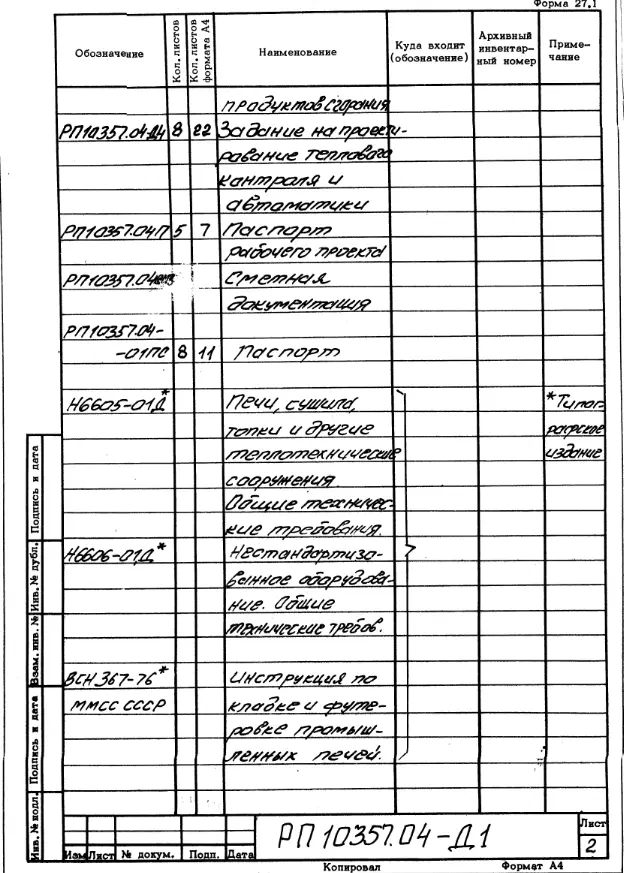 Форма 27.1
Обозначение Кол. листов Кол. листов формата А4 Наименование Куда входит (обозначение) Архивный инвентарный номер Примечание
продуктов сгорания
РП10357.04-Д4 8 22 Задание на проекти-
рование теплового
контроля и
автоматики
РП10357.04П 5 7 Паспорт
рабочего проекта
РП10357.04 Сметная
документация
РП10357.04-
-01ПС 8 11 Паспорт
Н6605-01Д* Печи, сушила, *Типог-
топки и другие рафское
теплотехнические издание
сооружения.
Общие техничес-
кие требования.
Н6606-01Д* Нестандартизо-
ванное оборудова-
ние. Общие
технические требов.
ВСН 367-76* Инструкция по
ММСС СССР кладке и футе-
ровке промыш-
ленных печей.
Подпись и дата
Инв. № дубл.
Взам. инв. №
Подпись и дата
Инв. № подл.
РП10357.04-Д1
Лист
2
Изм Лист № докум. Подп. Дата
Копировал Формат А4